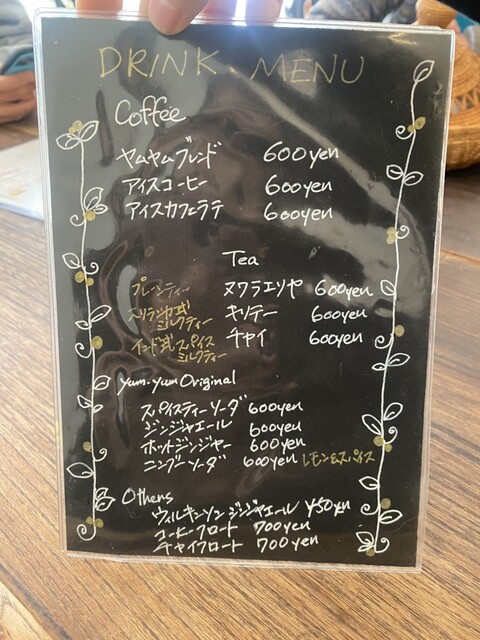 DRINK MENU
Coffee
ヤムヤムブレンド 600yen
アイスコーヒー 600yen
アイスカフェラテ 600yen
Tea
プレーンティー ヌワラエリヤ 600yen
スリランカ式ミルクティー キリテー 600yen
インド式スパイスミルクティー チャイ 600yen
yum-yum Original
スパイスティーソーダ 600yen
ジンジャエール 600yen
ホットジンジャー 600yen
ニンブーソーダ 600yen レモン&スパイス
Others
ウィルキンソンジンジャエール 450yen
コーヒーフロート 700yen
チャイフロート 700yen